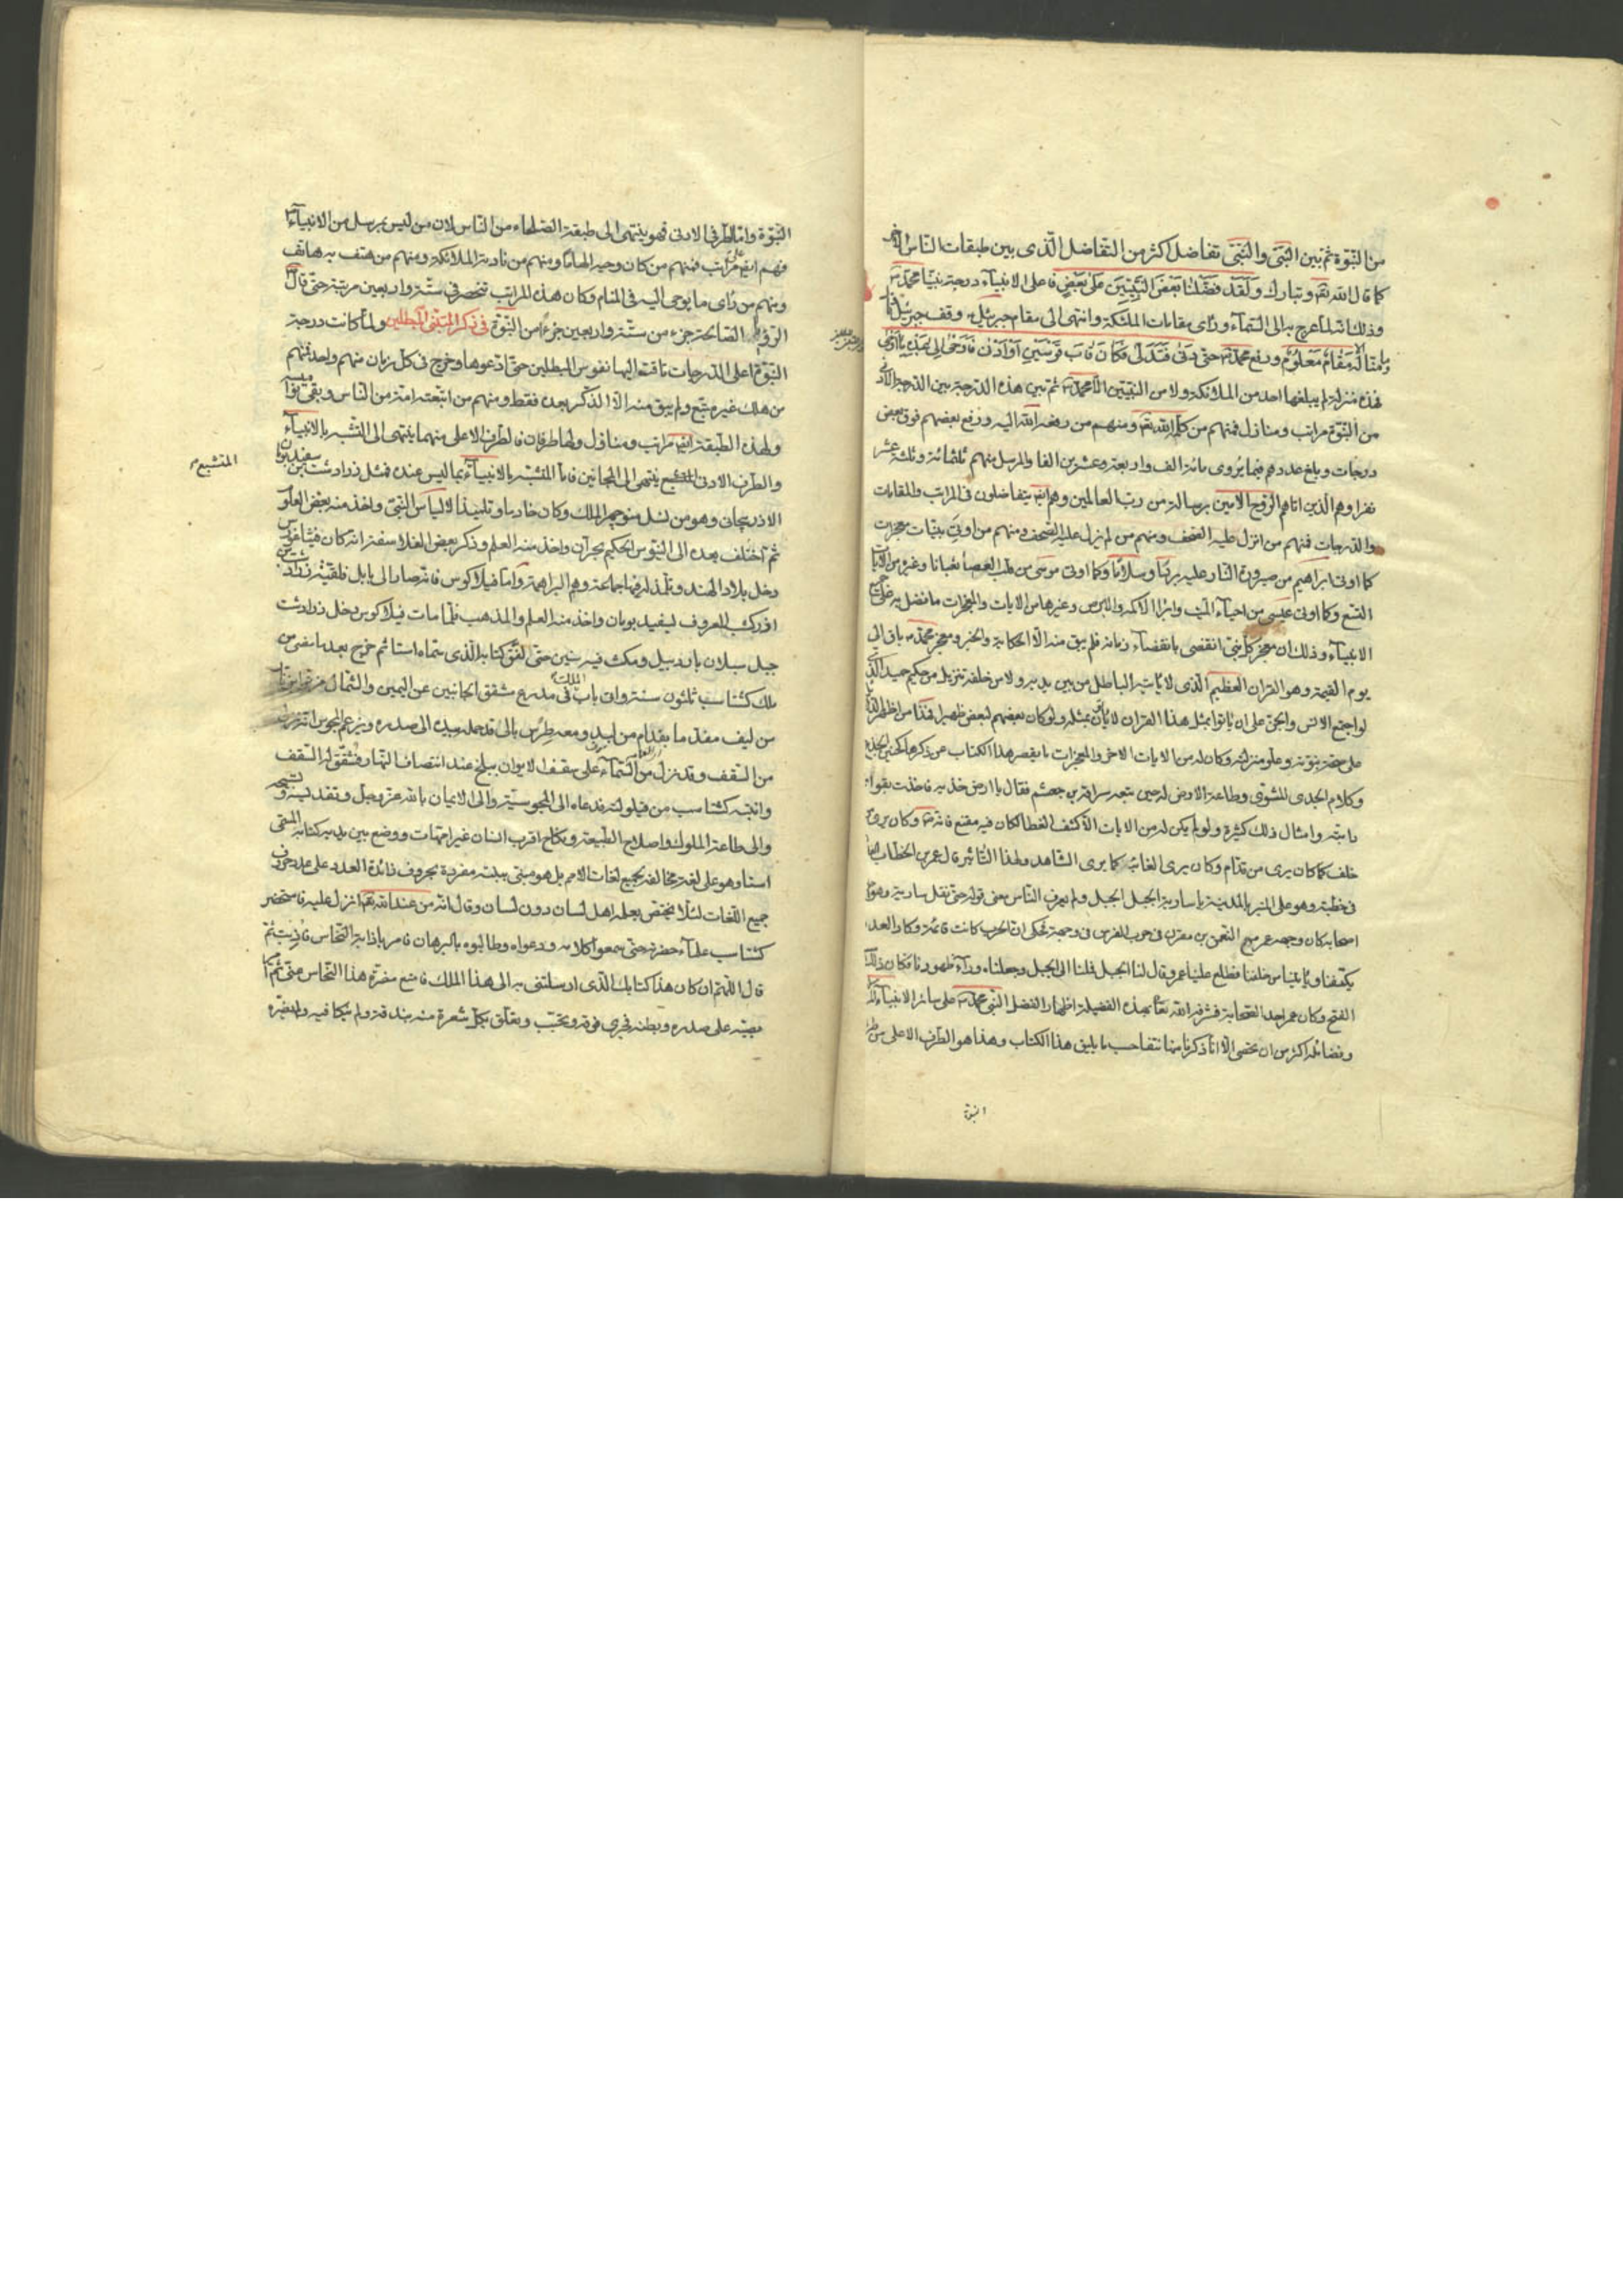 من النبوّة ثم بين النبىّ والنبىّ تفاضل اكثر من التفاضل الّذى بين طبقات النّاس
كما قال الله تعم وتبارك وَلَقَد فَضَّلنا بَعضَ النَّبِيِّينَ عَلى بَعضٍ فاعلى الانبيآء درجة نبيّنا محمّد ص
وذلك انه لما عرج به الى السّمآء ورأى مقامات الملئكة وانتهى الى مقام جبرئيل وقف جبرئيل
وما مِنّا الّا له مَقامٌ مَعلُومٌ ورفع محمّد ص حتى دَنى فَتَدَلّى فَكانَ قابَ قَوسَينِ اَو اَدنى فَاَوحى اِلى عَبدِهِ ما اَوحى
فهذه منزلة لم يبلغها احد من الملائكة ولا من النبيّين الّا محمّد ص ثم بين هذه الدرجة بين الدرجة
من النبوّة مراتب ومنازل فمنهم من كلّم الله تعم ومنهم من رفعه الله اليه ورفع بعضهم فوق بعض
درجات وبلغ عددهم فيما يُروى مائة الف واربعة وعشرين الفا والمرسل منهم ثلثمائة وثلثة عشر
نفرا وهم الّذين اتاهم الروح الامين برسالة من ربّ العالمين وهم ايضا يتفاضلون فى المراتب والمقامات
والدّرجات فمنهم من انزل عليه الصّحف ومنهم من لم ينزل عليه الصّحف ومنهم من اوتى بيّنات معجزات
كما اوتى ابراهيم من صيرورة النّار عليه بردًا وسلامًا وكما اوتى موسى من قلب العصا ثعبانا وغيره من الآيات
التسع وكما اوتى عيسى من احيآء الميّت وابرا الاكمه والابرص وغيرها من الايات والمعجزات ما فضل به على جميع
الانبيآء وذلك ان معجز كلّ نبىّ انقضى بانقضآء زمانه فلم يبق منه الّا الحكاية والخبر ومعجز محمّد ص باق الى
يوم القيمة وهو القران العظيم الّذى لا يأتيه الباطل من بين يديه ولا من خلفه تنزيل من حكيم حميد الّذى
لو اجتمع الانس والجنّ على ان يأتوا بمثل هذا القران لا يأتون بمثله ولو كان بعضهم لبعض ظهيرا فهذا من اظهر
على صحّة نبوّته وعلو منزلته وكان له من الايات الاخر والمعجزات ما يقصر هذا الكتاب عن ذكرها كحنين الجذع
وكلام الجدى المشوى وطاعة الارض له حين تبعه سراقة بن جعشم فقال يا ارض خذيه فاخذت بقوائم
دابته وامثال ذلك كثيرة ولو لم يكن له من الايات الّا كشف الغطا لكان فيه مقنع فانه ص وكان يرى من
خلف كما كان يرى من قدّام وكان يرى الغائب كما يرى الشّاهد ولهذا التاثير قال عمر بن الخطاب
فى خطبته وهو على المنبر بالمدينة يا سارية الجبل الجبل ولم يعرف النّاس معنى قوله حتى نقل سارية وهو
اصحابه كان وجهه عمر مع النعمن بن مقرن فى حرب الفرس فى وجهة فحكى ان الحرب كانت قائمة وكاد العدو
يكتنفنا ويأتينا من خلفنا فطلع علينا عمر وقال لنا الجبل فملنا الى الجبل وجعلناه ورآء ظهورنا فكان ذلك
الفتح وكان عمر احد الصّحابة فشرفه الله تعا بهذه الفضيلة اظهارا لفضل النّبى محمّد ص على سائر الانبيآء
وفضائله اكثر من ان تحصى الّا انا ذكرنا منها نتفا حسب ما يليق هذا الكتاب وهذا هو الطرف الاعلى من
النبوة
النّبوّة وامّا الطّرف الادنى فهو ينتهى الى طبقة الصّلحاء من النّاس لان من ليس بمرسل من الانبيآء
فهم ايضا على مراتب فمنهم من كان وحيه الهامًا ومنهم من نادته الملائكة ومنهم من هتف به هاتف
ومنهم من رأى ما يوحى اليه فى المنام وكان هذه المراتب تنحصر فى ستّة واربعين مرتبة حتّى قال
الرؤيا الصّالحة جزء من ستّة واربعين جزءًا من النّبوّة فى ذكر المتنبّى المبطلين ولما كانت درجة
النّبوّة اعلى الدّرجات تاقت اليها نفوس المبطلين حتّى ادّعوها وخرج فى كلّ زمان منهم واحد فمنهم
من هلك غير متّبع ولم يبق منه الّا الذّكر بعده فقط ومنهم من اتبعته امة من النّاس وبقى
ولهذه الطّبقة ايضا مراتب ومنازل ولها طرفان فالطّرف الاعلى منهما ينتهى الى التشبّه بالانبيآء
والطّرف الادنى المتشبع ينتهى الى المجانين فاما المتشبّه بالانبيآء بما ليس عنده فمثل زرادشت بن سفيدبومان
المتشبع
الاذربيجان وهو من نسل منوجهر الملك وكان خادما وتلميذا لالياس النّبىّ واخذ منه بعض العلوم
ثم اختلف بعده الى الحكيم بحرّان واخذ منه العلم وذكر بعض الفلاسفة انه كان فيثاغورس
دخل بلاد الهند وتلمذ له فيها جماعة وهم البراهمة وامّا فيلاكوس فانه صار الى بابل فلقيه زرادشت
المعروف واخذ منه العلم والمذهب فلمّا مات فيلاكوس دخل زرادشت
جبل سبلان باردبيل ومكث فيه سنين حتّى لفّق كتابه الّذى سمّاه استا ثم خرج بعد ما مضى من
ملك كشتاسب ثلثون سنة واتى باب الملك فى مدرع شقق الجانبين عن اليمين والشّمال
من ليف ومعه طرس بالى قد جمله بيده الى صدره ويزعم المجوس انه نزل
من السّقف وقد نزل من السّمآء على سقف الايوان ببلخ عند انتصاف النّهار فشقّ له السّقف
وانتبه كشتاسب من قيلولته فدعاه الى المجوسيّة والى الايمان بالله عزّ وجلّ وتقديسه وتسبيحه
والى طاعة الملوك واصلاح الطّبيعة ونكاح اقرب انسان غير امّهات ووضع بين يديه كتابه المسمّى
استا وهو على لغة مخالفة لجميع لغات الامم بل هو مبنى ببنية مفردة بحروف زائدة العدد على عدد حروف
جميع اللّغات لئلّا يختصّ بعلمه اهل لسان دون لسان وقال انّه من عند الله تعم انزل عليه فاستحضر
كشتاسب علمآء حضرته حتّى سمعوا كلامه ودعواه وطالبوه بالبرهان فامر باذابة النّحاس فاذيبت ثم
قال اللّهمّ ان كان هذا كتابك الّذى ارسلتنى به الى هذا الملك فامنع مضرّة هذا النّحاس عنّى ثم امر
بصبّه على صدره وبطنه فجرى فوقه وتحته وتعلّق بكلّ شعرة منه بندقة ولم فيه ولم يضرّه